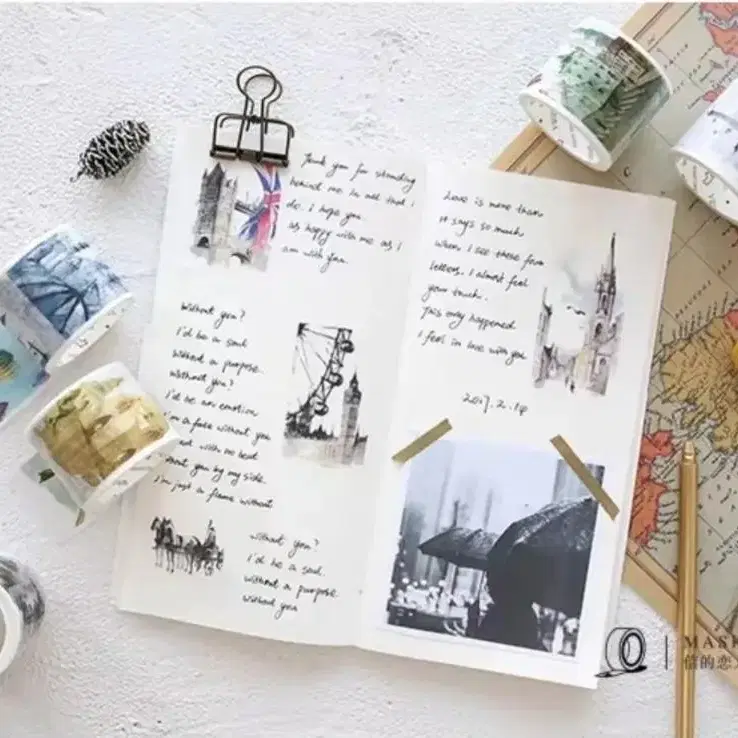 Thank you for standing
behind me in all that I
do. I hope you
as happy with me as I
am with you.
Without you?
I'd be a soul
Without a purpose.
Without you?
I'd be an emotion
I'm a face without you
out with no beat
bout you by my side.
I'm just a flame without
without you?
I'd be a soul.
without a purpose
without you
Love is more than
it says so much
When I see these four
letters, I almost feel
your touch.
This only happened
I feel in love with you
2017.2.14
MASK
信的恋